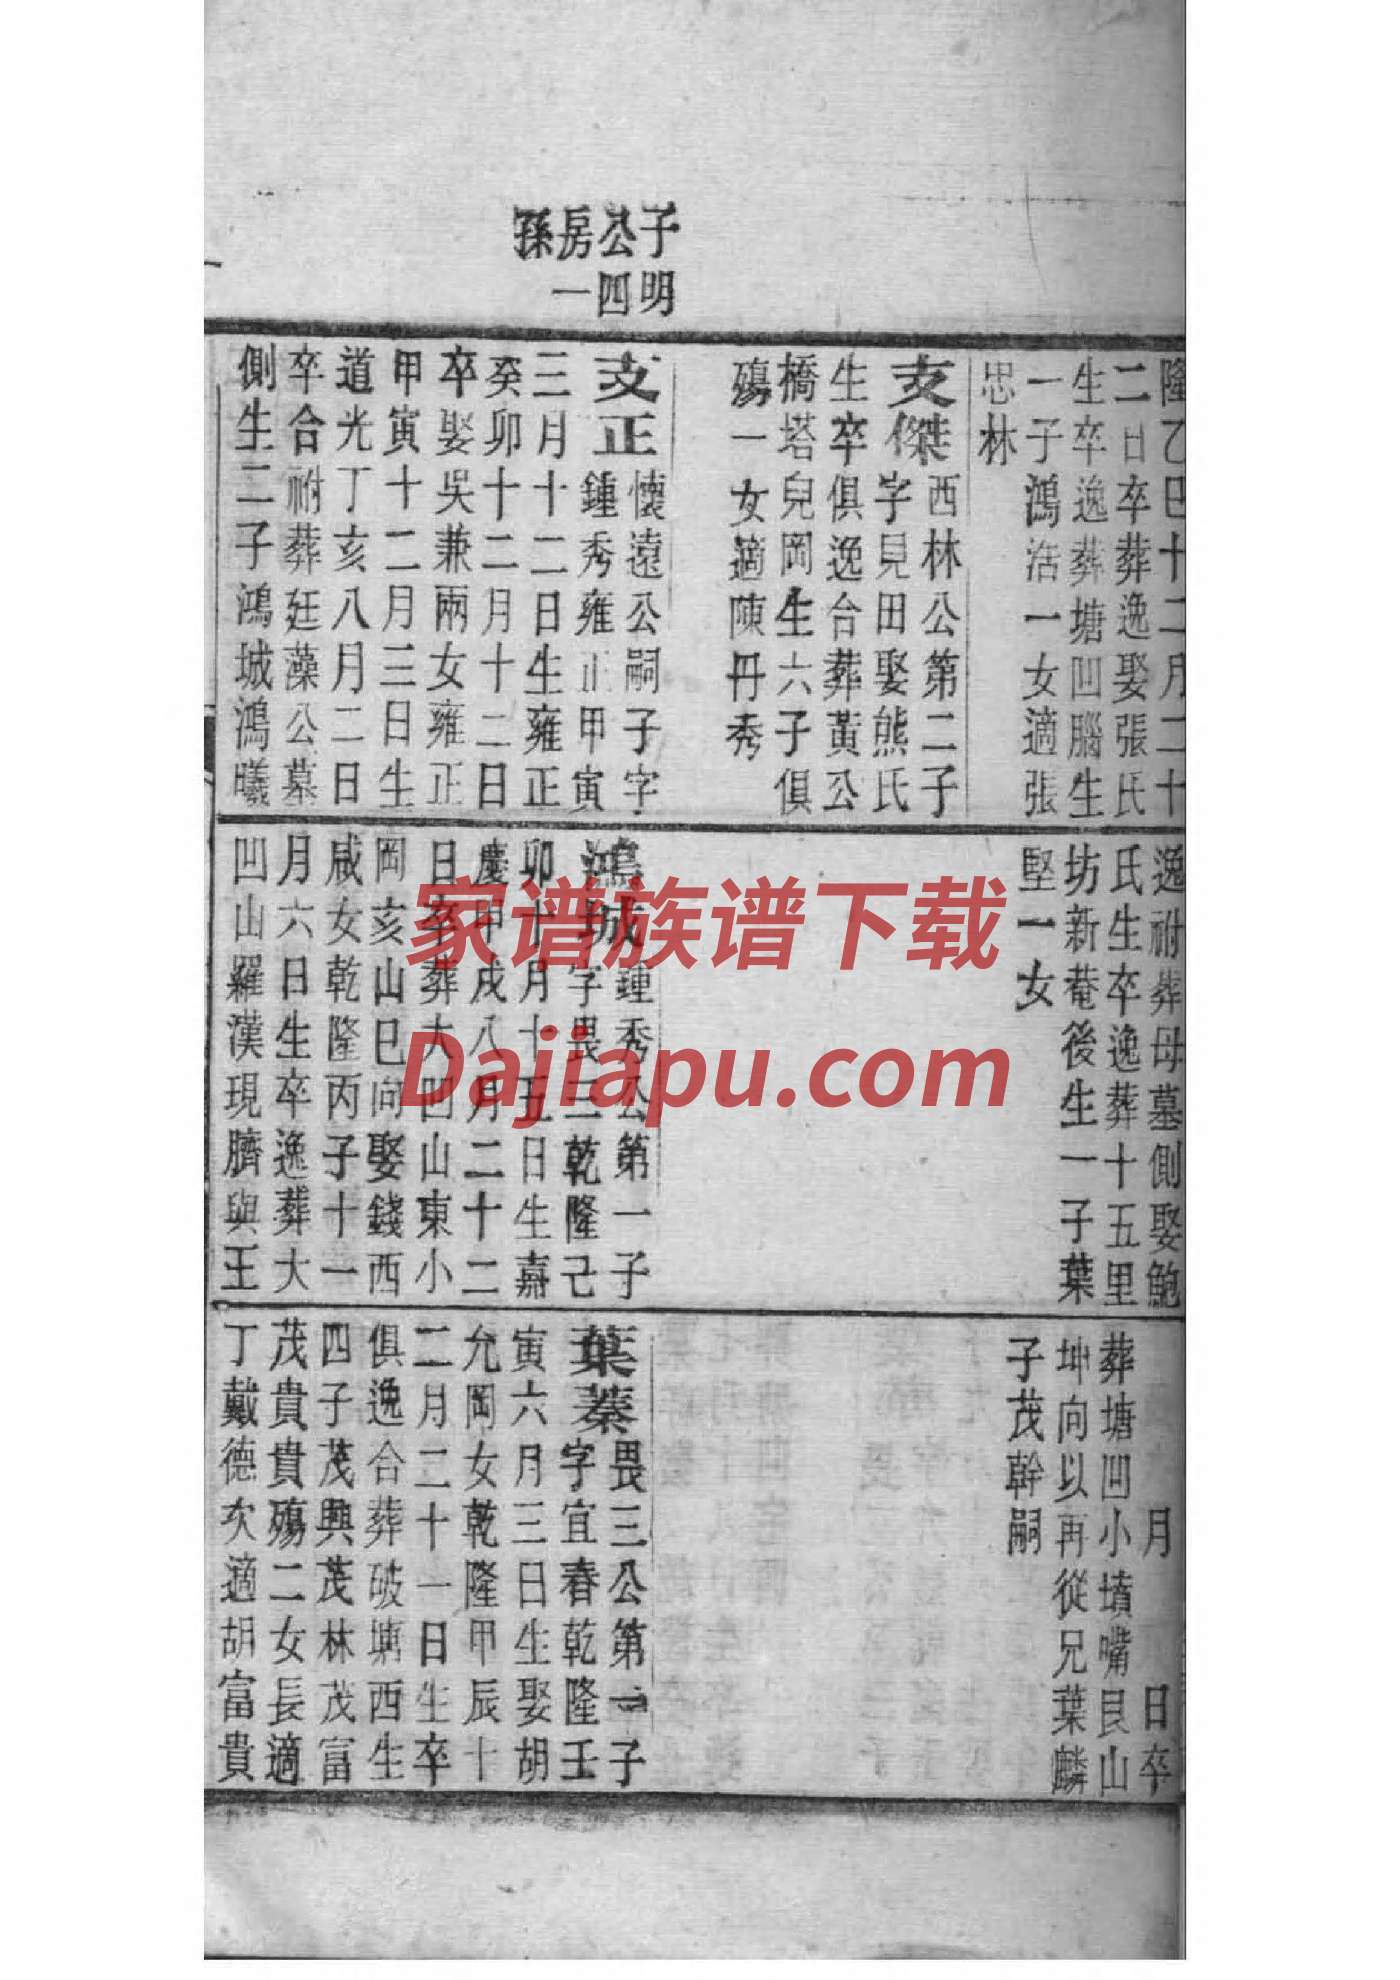 子明
公四
房一
孫
隆乙巳十二月二十
二日卒葬逸娶張氏
生卒逸葬塘凹腦生
一子鴻活一女適張
忠林
支傑
西林公第二子
字見田娶熊氏
生卒俱逸合葬黃公
橋塔兒岡生六子俱
殤一女適陳丹秀
支正
懷遠公嗣子字
鍾秀雍正甲寅
三月十二日生雍正
癸卯十二月十二日
卒娶吳兼兩女雍正
甲寅十二月三日生
道光丁亥八月二日
卒合祔葬廷藻公墓
側生二子鴻城鴻曦
逸祔葬母墓側娶鮑
氏生卒逸葬十五里
坊新菴後生一子葉
堅一女
鴻城
鍾秀公第一子
字畏三乾隆己
卯十月十五日生嘉
慶甲戌八月二十二
日卒葬大凹山東小
岡亥山巳向娶錢西
咸女乾隆丙子十一
月六日生卒逸葬大
凹山羅漢現臍與王
月 日卒
葬塘凹小墳嘴艮山
坤向以再從兄葉麟
子茂幹嗣
葉蓁
畏三公第一子
字宜春乾隆壬
寅六月三日生娶胡
允岡女乾隆甲辰十
二月二十一日生卒
俱逸合葬破塘西生
四子茂興茂林茂富
茂貴貴殤二女長適
丁戴德次適胡富貴
家谱族谱下载
Dajiapu.com